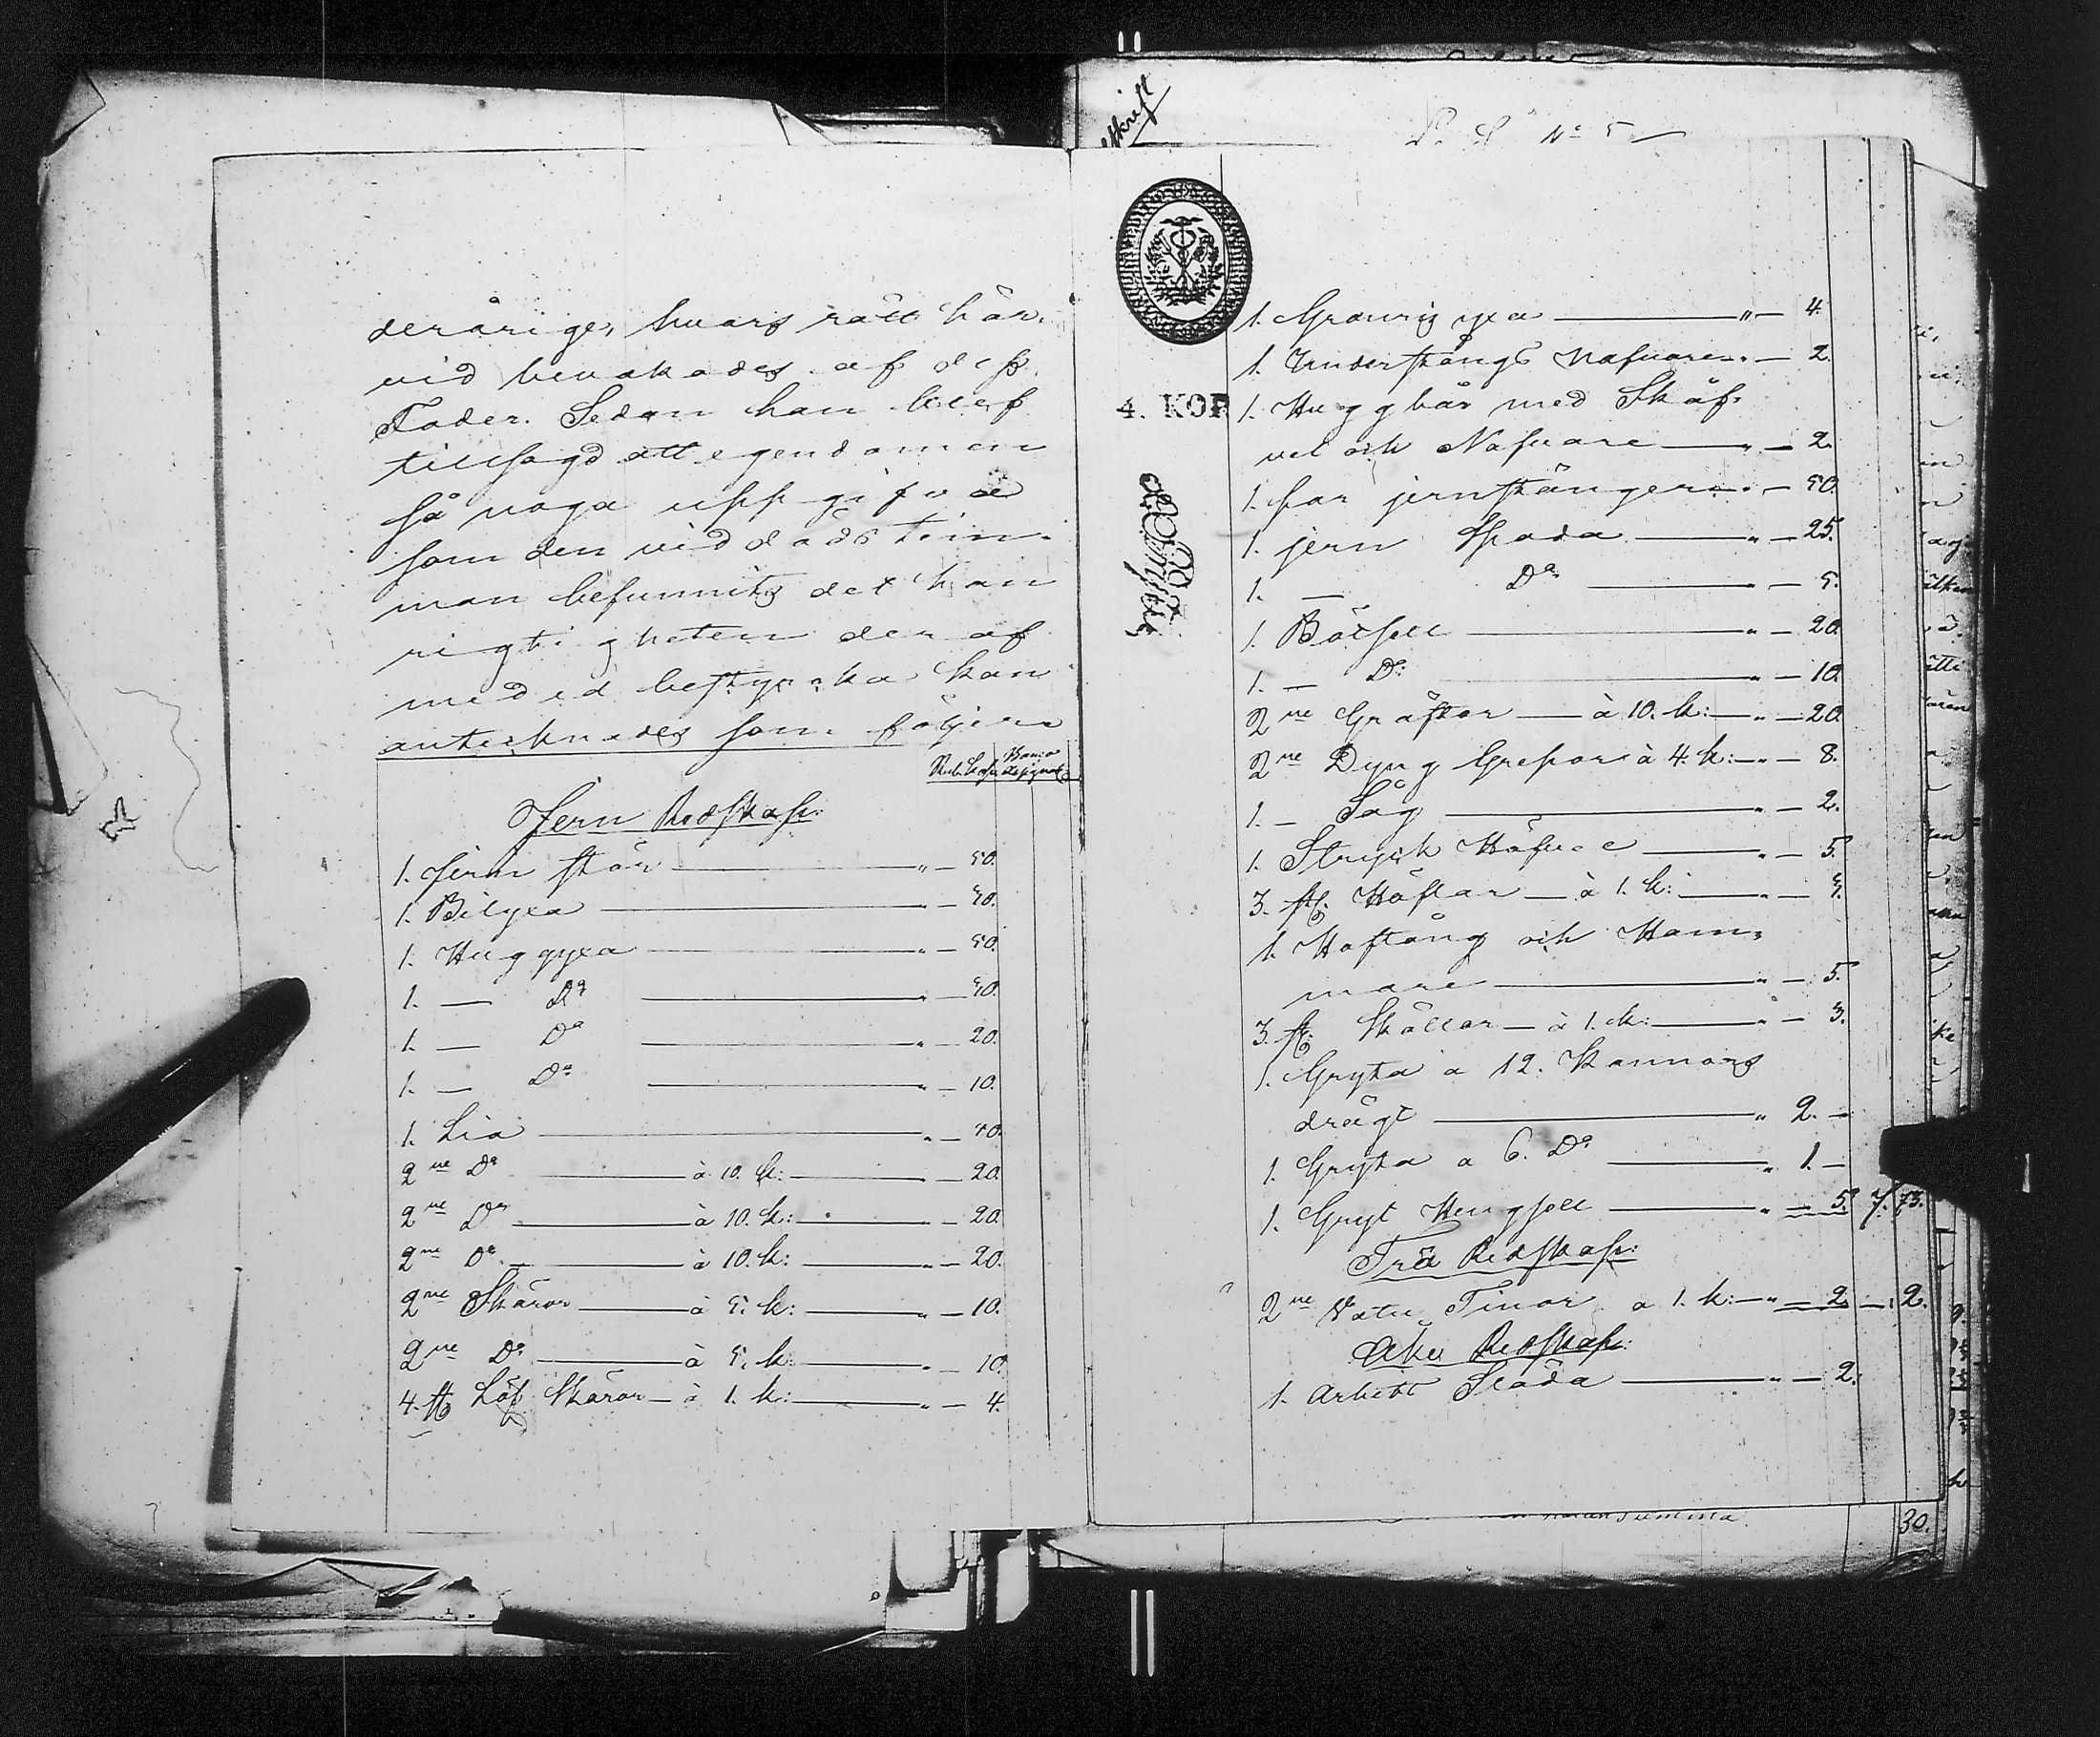 derårige, hvars rätt här-
vid bevakades af dess
Fader. Sedan han blef
tillsagd att egendomen
så noga uppgifva
som den vid dödstim-
man befunnits det han
rigtigheten der af
med ed bestyrka kan
antecknades som följer
Jern Redskap:
1. Jern stör — " — 50.
1. Bilyxa — " — 40.
1. Huggyxa — " — 50.
1. — Do — " — 40.
1. — Do — " — 20.
1. — Do — " — 10.
1. Lia — " — 40.
2ne Do — à 10. k: — " — 20.
2ne Do — à 10. k: — " — 20.
2ne Do — à 10. k: — " — 20.
2ne Skäror — à 5. k: — " — 10.
2ne Do — à 5. k: — " — 10.
4. st Löf Skäror — à 1. k: — " — 4.
No 5
4. KOP
1. yxa — " — 4.
1. Understångs Nafvare " — 2.
1. Huggbår med Skäf-
vel och Nafvare — " — 2.
1. par jernstänger " — 50.
1. jern Spada — " — 25.
1. — Do — " — 5.
1. Bötfell — " — 20.
1. — Do: — " — 10.
2ne Gräftor — à 10. k: — " — 20.
2ne Dyng Grepar à 4. k: — " — 8.
1. — Såg — " — 2.
1. Stryck Höfvel — " — 5.
3. st. Höflar — à 1. k: — " — 3.
1. Hoftång och Ham-
mare — " — 5.
3. st. Skällor — à 1. k: — " — 3.
1. Gryta a 12. Kannors
drägt — " 2. —
1. Gryta a 6. Do — " 1. —
1. Gryt Hengsell — " — 5. 7. 73.
Trä Redskap:
2ne Vatu Tinor a 1. k: — " — 2. — 2.
Åke Redskap:
1. Arbets Släda — " — 2.
Summa
30.